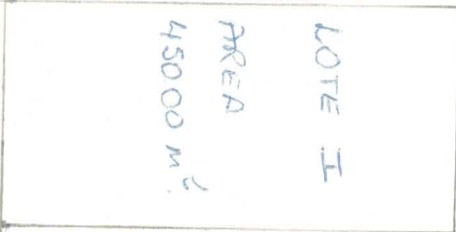 LOTE I
AREA
45000 m².